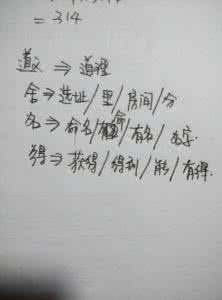 = 314
道义 ⇒ 道理
舍 ⇒ 选址/里/房间/分
名 ⇒ 命名/有命/有名/名字.
得 ⇒ 获得/得到/能/有得.